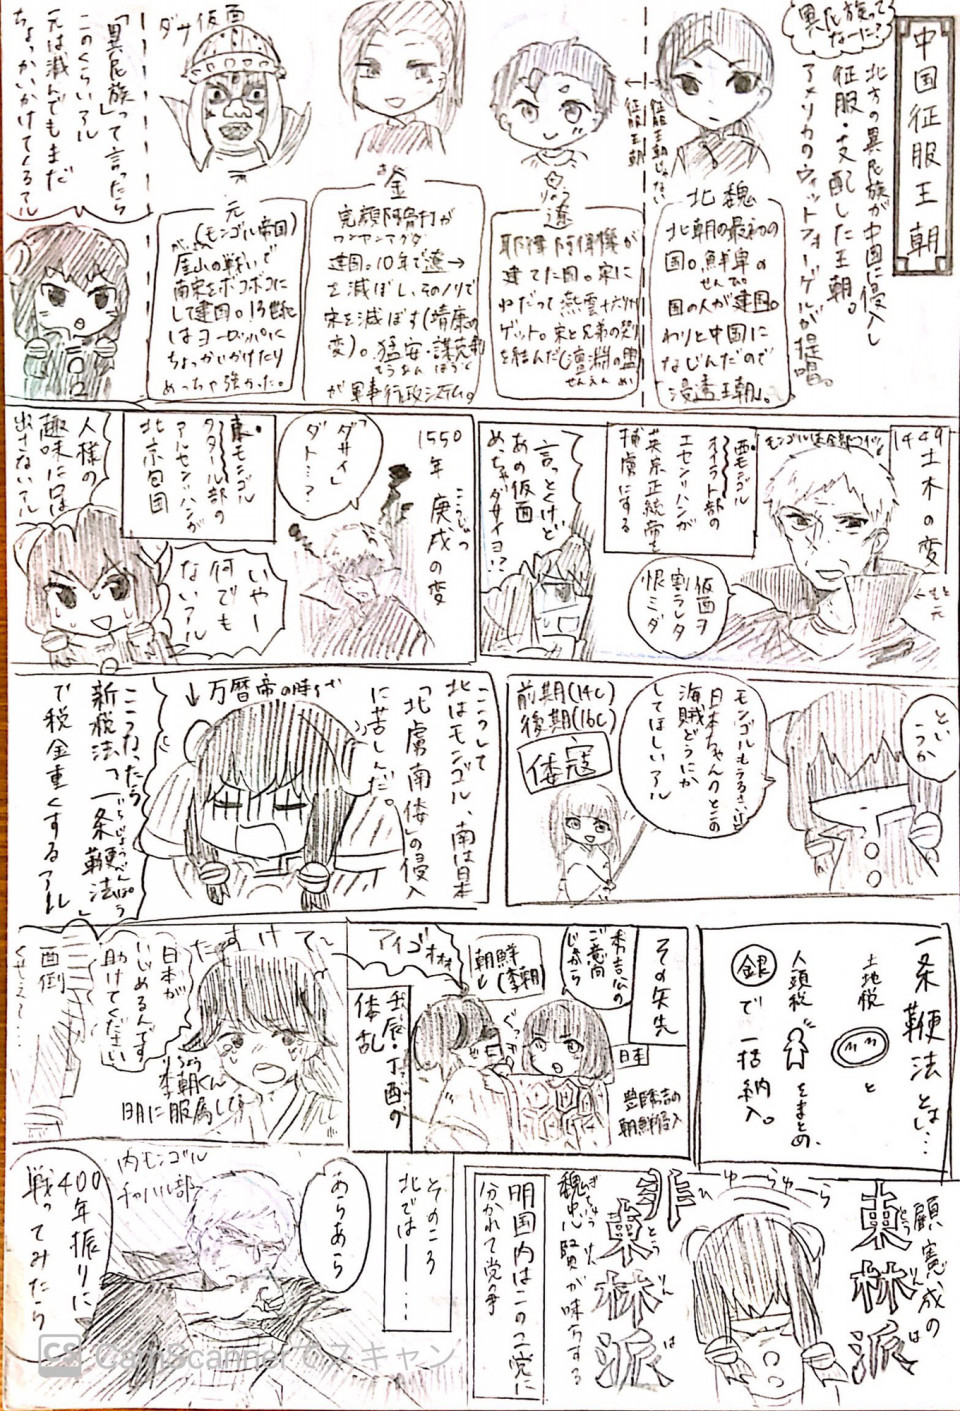 中国征服王朝
異民族って
なーに?
北方の異民族が中国に侵入し
征服・支配した王朝。
アメリカのウィットフォーゲルが提唱。
征服王朝じゃない
征服王朝
北魏
北朝の最初の
国。鮮卑の
せんぴ
国の人が建国。
わりと中国に
なじんだので
「浸透王朝」。
りょう
遼
耶律阿保機が
建てた国。宋に
ねだって燕雲十六州
ゲット。宋と兄弟の契り
を結んだ(澶淵の盟
せんえん めい
金
完顔阿骨打が
ワンヤンアグダ
建国。10年で遼→
を滅ぼし、そのノリで
宋を滅ぼす(靖康の
変)。猛安・謀克制
もうあん ぼうこく
が軍事行政システム。
元
(モンゴル帝国)
がいざん
崖山の戦いで
南宋をボコボコに
して建国。13世紀に
はヨーロッパに
ちょっかいかけたり
めっちゃ強かった。
ダサ仮面
「異民族」って言ったら
このくらいアル
元は滅んでもまだ
ちょっかいかけてくるアル
1449土木の変
モンゴルは全部コイツ
←もと元
西モンゴル
オイラト部の
エセン=ハンが
英宗正統帝を
捕虜にする
仮面ヲ
割ラレタ
恨ミダ
言っとくけど
あの仮面
めっちゃダサイヨ!?
1550年 庚戌の変
こうじゅつ
「ダサイ」
ダト…?
東モンゴル
タタール部の
アルタン=ハンが
北京包囲
いやー
何でも
ないアル
人様の
趣味に口は
出さないアル
というか
モンゴルもうるさいけど
日本ちゃんとこの
海賊どうにか
してほしいアル
前期(14C)
後期(16C)
倭寇
こうして
北はモンゴル、南は日本
に苦しんだ。
「北虜南倭」の侵入
↓万暦帝の時らへん
こうなったら
新税法「一条鞭法」
いちじょうべんぽう
で税金重くするアル
一条鞭法とは…
土地税 と
人頭税 をまとめ、
銀で一括納入。
その矢先
秀吉公の
ご意向
じゃから
日本
豊臣秀吉の
朝鮮侵入
ぐっ
朝鮮
(李朝)
アイゴオオオ
壬辰・丁酉の
倭乱
たすけて〜
日本が
いじめるんです
助けてください
李朝くん
明に服属してる
面倒
くせえ〜…
顧憲成の
東林派
とうりんは
ひゅーらゆーら
非東林派
とうりんは
魏忠賢が味方する
ぎちゅうけん
明国内はこの二党に
分かれて党争
そのころ
北では——…
あらあら
内モンゴル
チャハル部
400年振りに
戦ってみたら
CS CamScannerでスキャン